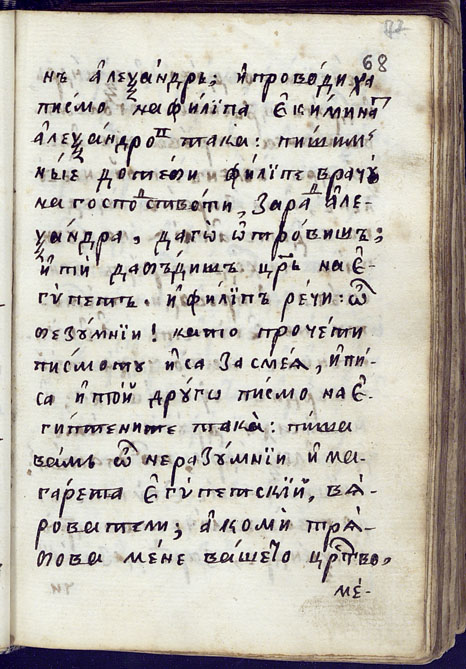 68
нъ а҆леѯа́ндръ; и҆ прово́диха
писмо на фили́па є҆кимина
а҆леѯа́ндрꙋ така: пишим
ны́е до тебѝ фили́пе врачꙋ̀
на господстводи, заради а҆ле-
ѯа́ндра, да го ѿтро́вишъ;
и҆ ти́ да бъ́дишъ цр҃ь на є҆-
гѵ́петъ. и҆ фили́пъ ре́чи: ѽ
безꙋ́мнїи! като проче́ти
писмоту и҆ са засмеѧ̀, и҆ пи́-
са и҆ то́й дрꙋ́го писмо на є҆-
гиптените така̀: пиша
вамъ ѽ неразꙋ́мнїи и҆ ма-
га́рета є҆гѵ́петскїй, вѧ́-
рователи; а҆ко мѝ трѧ́-
бова ме́не ва́шето цр҃тво,
ме́-